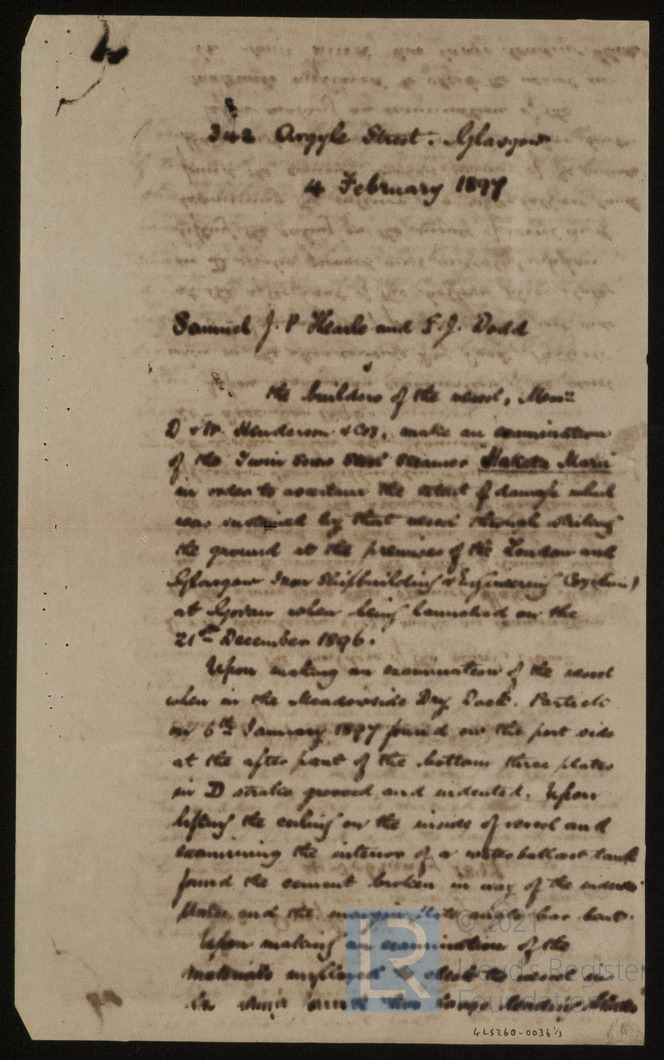 342 Argyle Street. Glasgow
4 February 1897
Samuel J. P. Hearle and F. J. Dodd
the builders of the vessel, Messrs
D & W. Henderson & Coy, make an examination
of the Twin Screw Steel Steamer Hakata Maru
in order to ascertain the extent of damage which
was sustained by that vessel through striking
the ground at the premises of the London and
Glasgow Iron Shipbuilding & Engineering Coy
at Govan when being launched on the
21st December 1896.
Upon making an examination of the vessel
when in the Meadowside Dry Dock. Partick
on 6th January 1897 found on the port side
at the after part of the bottom three plates
in D strake grooved and indented. Upon
lifting the ceiling on the inside of vessel and
examining the interior of a water ballast tank
found the cement broken in way of the
plates and the margin plate angle bar bent.
Upon making an examination of the
materials employed to check the vessel in
two large
© 2021
Lloyd's Register
Foundation
4LS260-0036 1/3